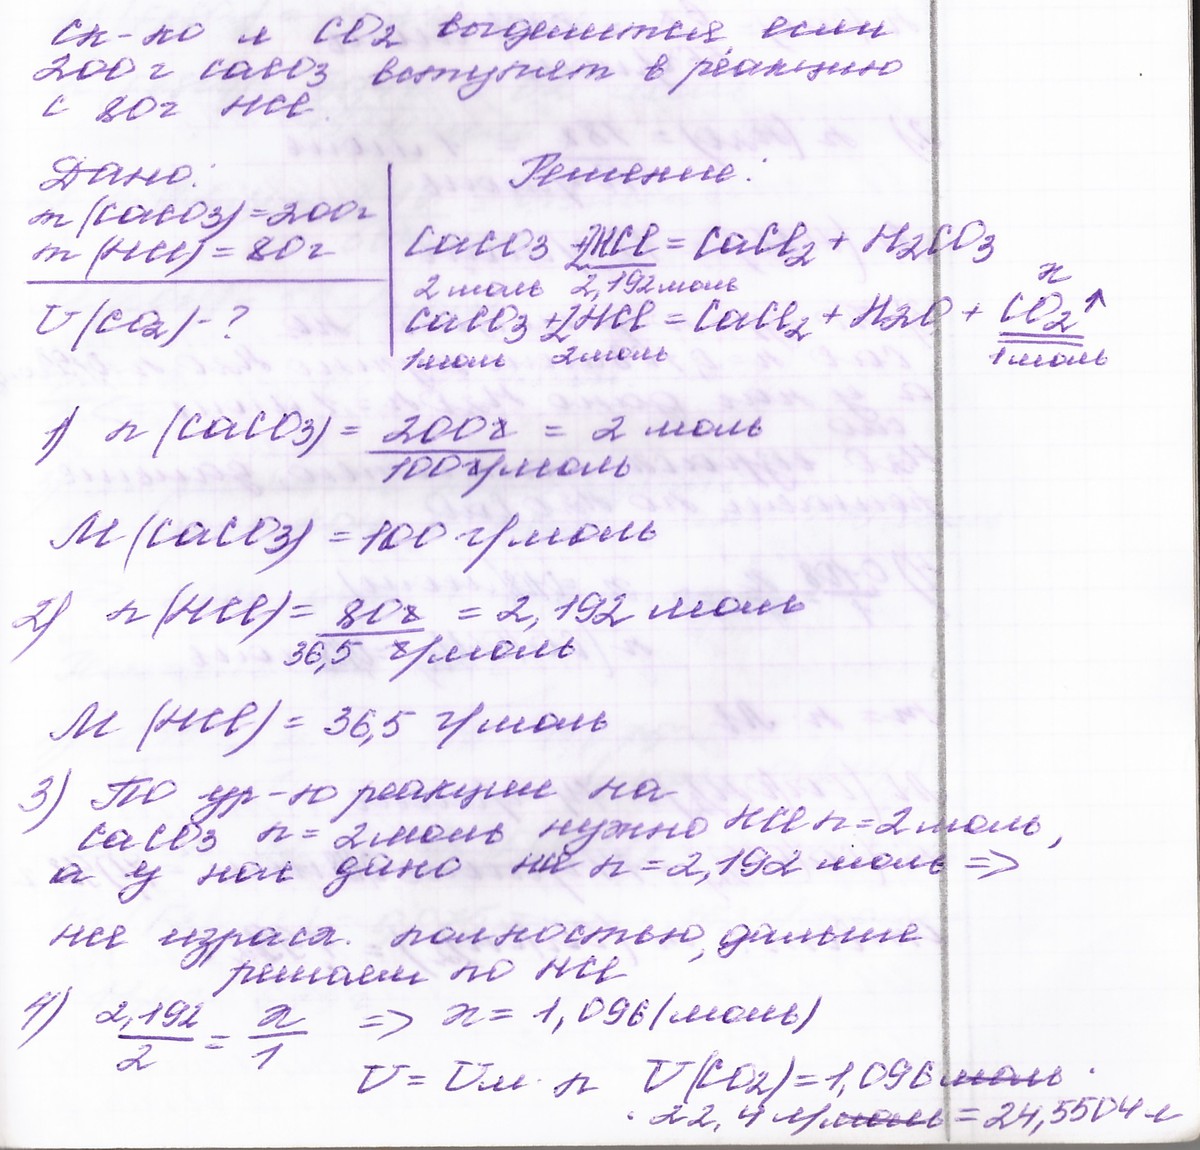 Ск-ко л CO2 выделится, если
200г CaCO3 вступят в реакцию
с 80г HCl.
Дано:
m(CaCO3)=200г
m(HCl)=80г
V(CO2)-?
Решение:
CaCO3 + 2HCl = CaCl2 + H2CO3
2 моль 2,192 моль x
CaCO3 + 2HCl = CaCl2 + H2O + CO2↑
1моль 2моль 1моль
1) n(CaCO3) = 200г / 100г/моль = 2 моль
M(CaCO3) = 100 г/моль
2) n(HCl) = 80г / 36,5 г/моль = 2,192 моль
M(HCl) = 36,5 г/моль
3) По ур-ю реакции на
CaCO3 n=2моль нужно HCl n=2моль,
а у нас дано n=2,192 моль =>
HCl израсх. полностью, дальше
решаем по HCl
4) 2,192/2 = x/1 => x = 1,096(моль)
V = Vм · n V(CO2) = 1,096 моль ·
· 22,4 л/моль = 24,5504 л